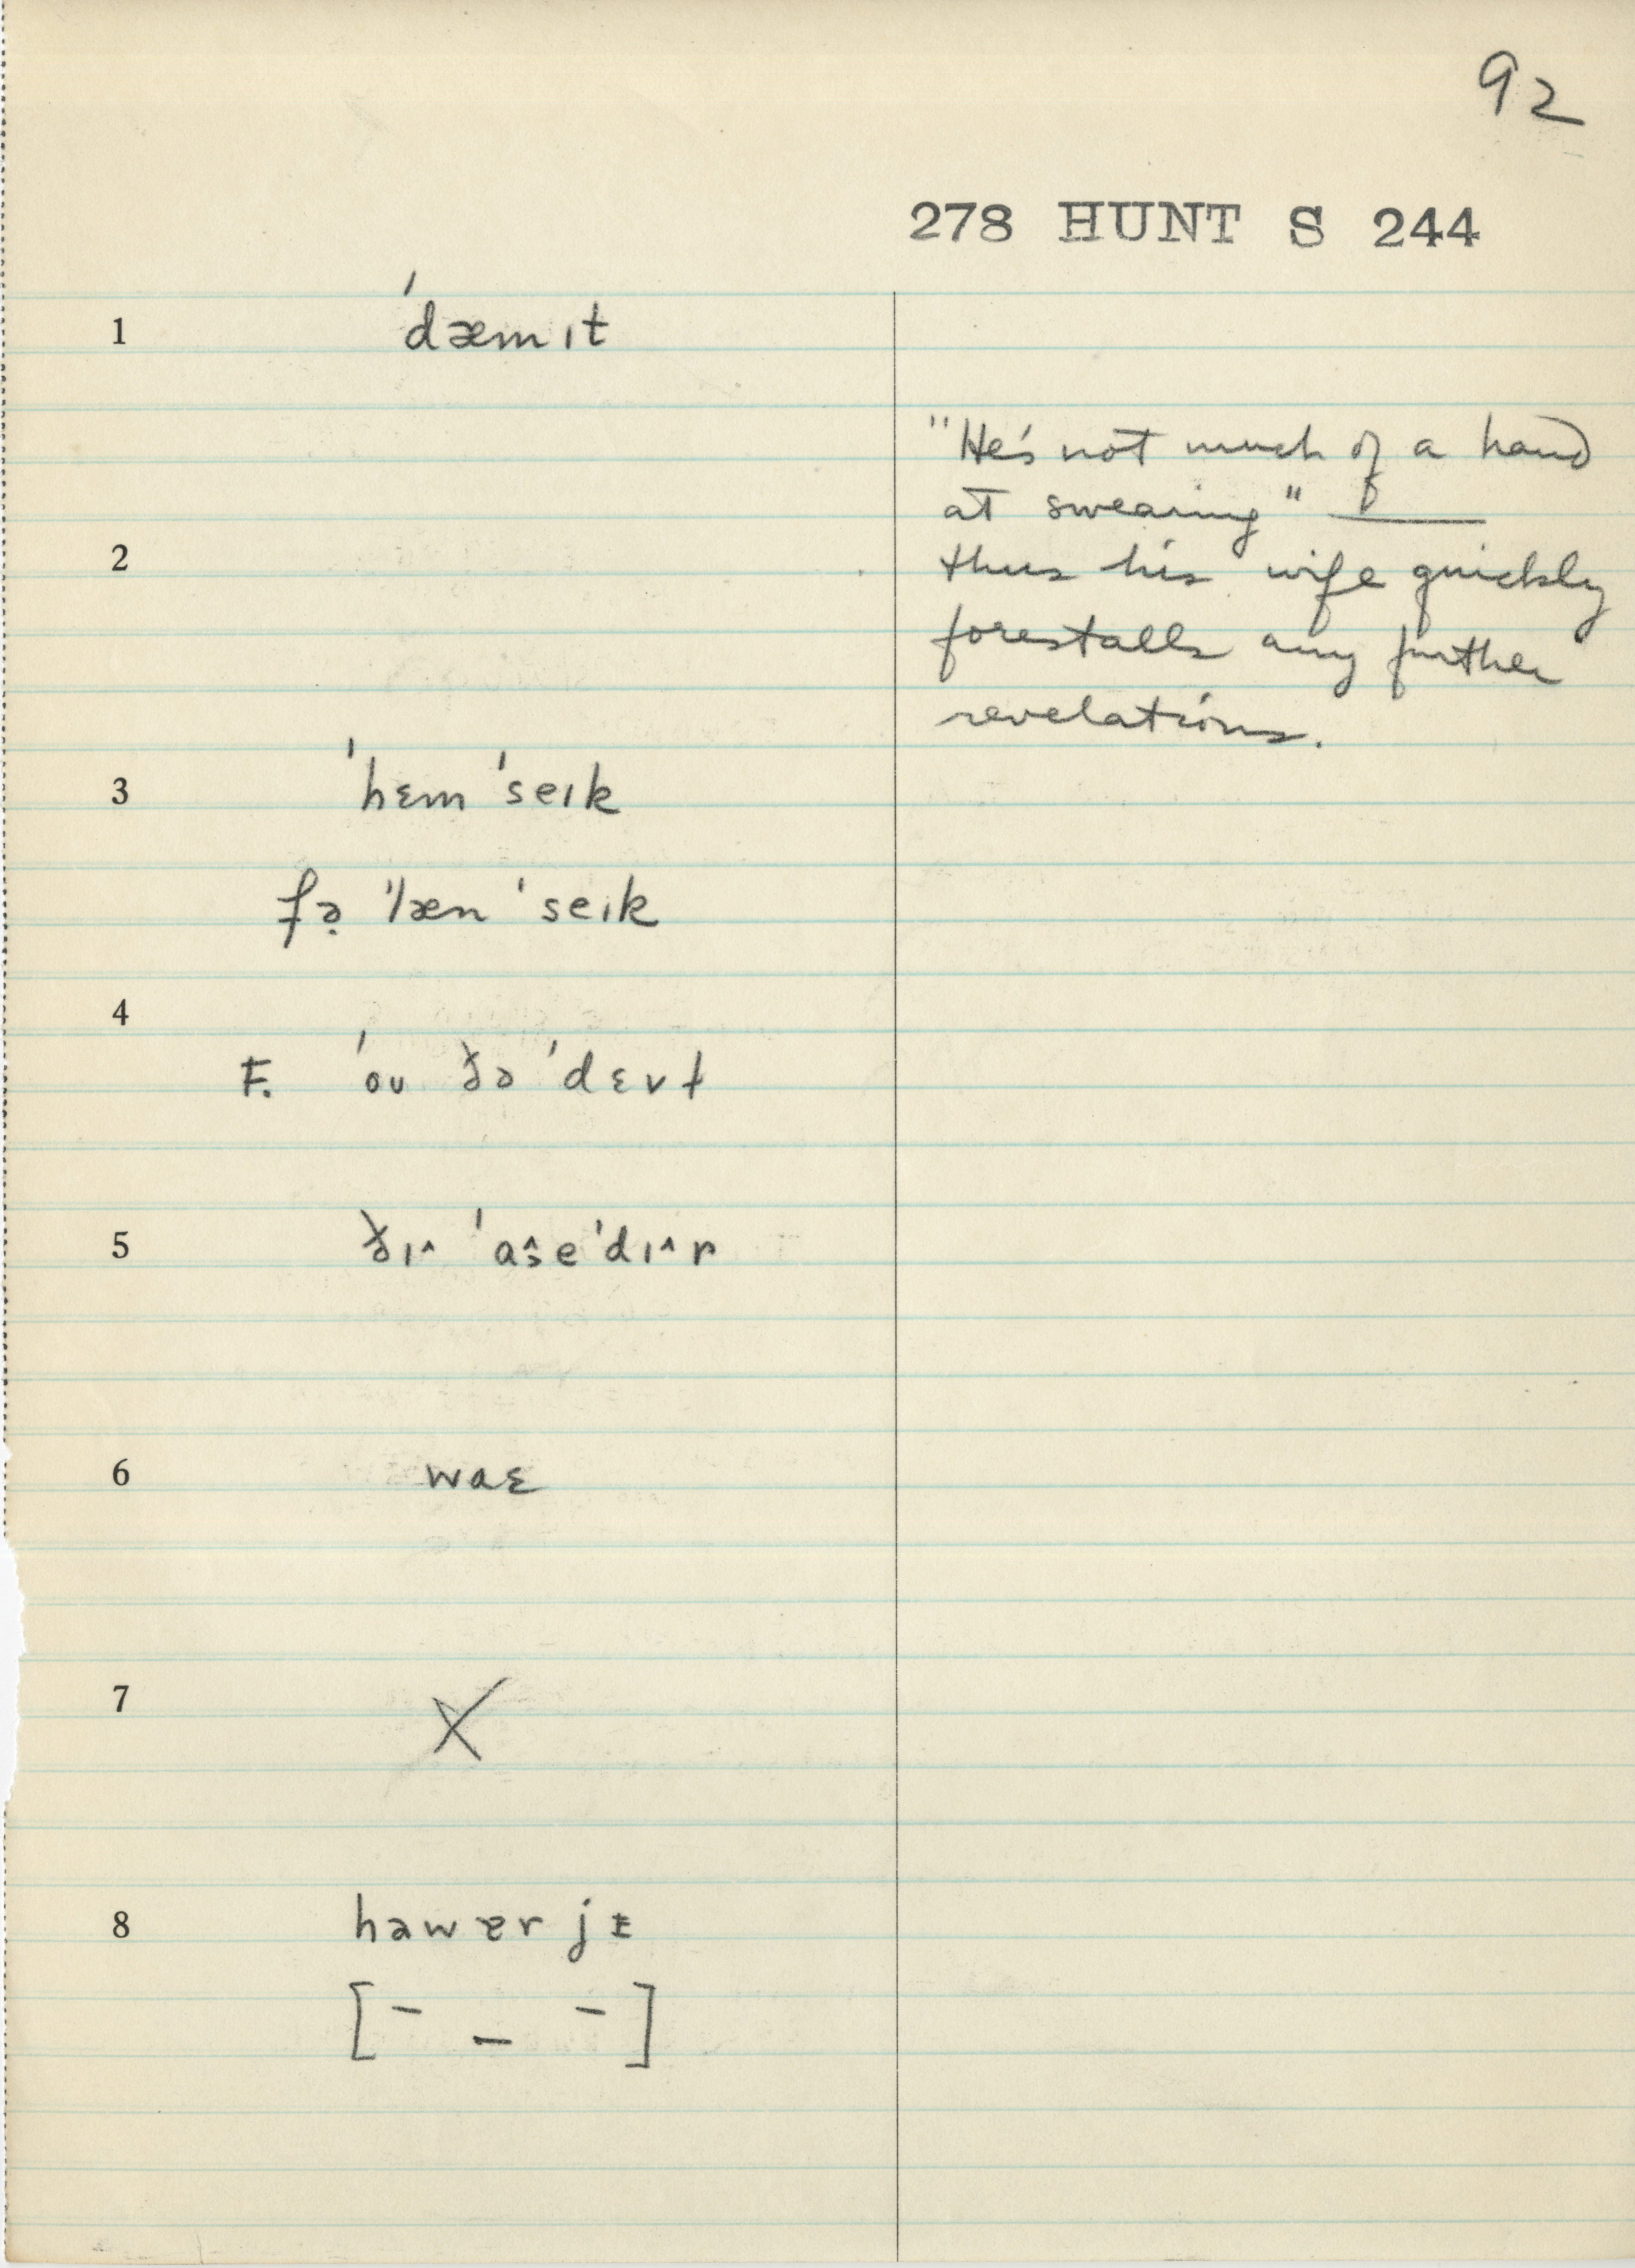 92
278 HUNT S 244
1 ˈdæmɪt
"He's not much of a hand
at swearing" —
2
thus his wife quickly
forestalls any further
revelations.
3 ˈhɛm ˈseɪk
fə̣ ˈlæn ˈseɪk
4
F. ˈoʊ ðə ˈdɛvɫ
5 ðɪ^ ˈaˆs̬eˈdɪ^r
6 waɛ
7 X
8 hawɐrjɪ
[– – –]